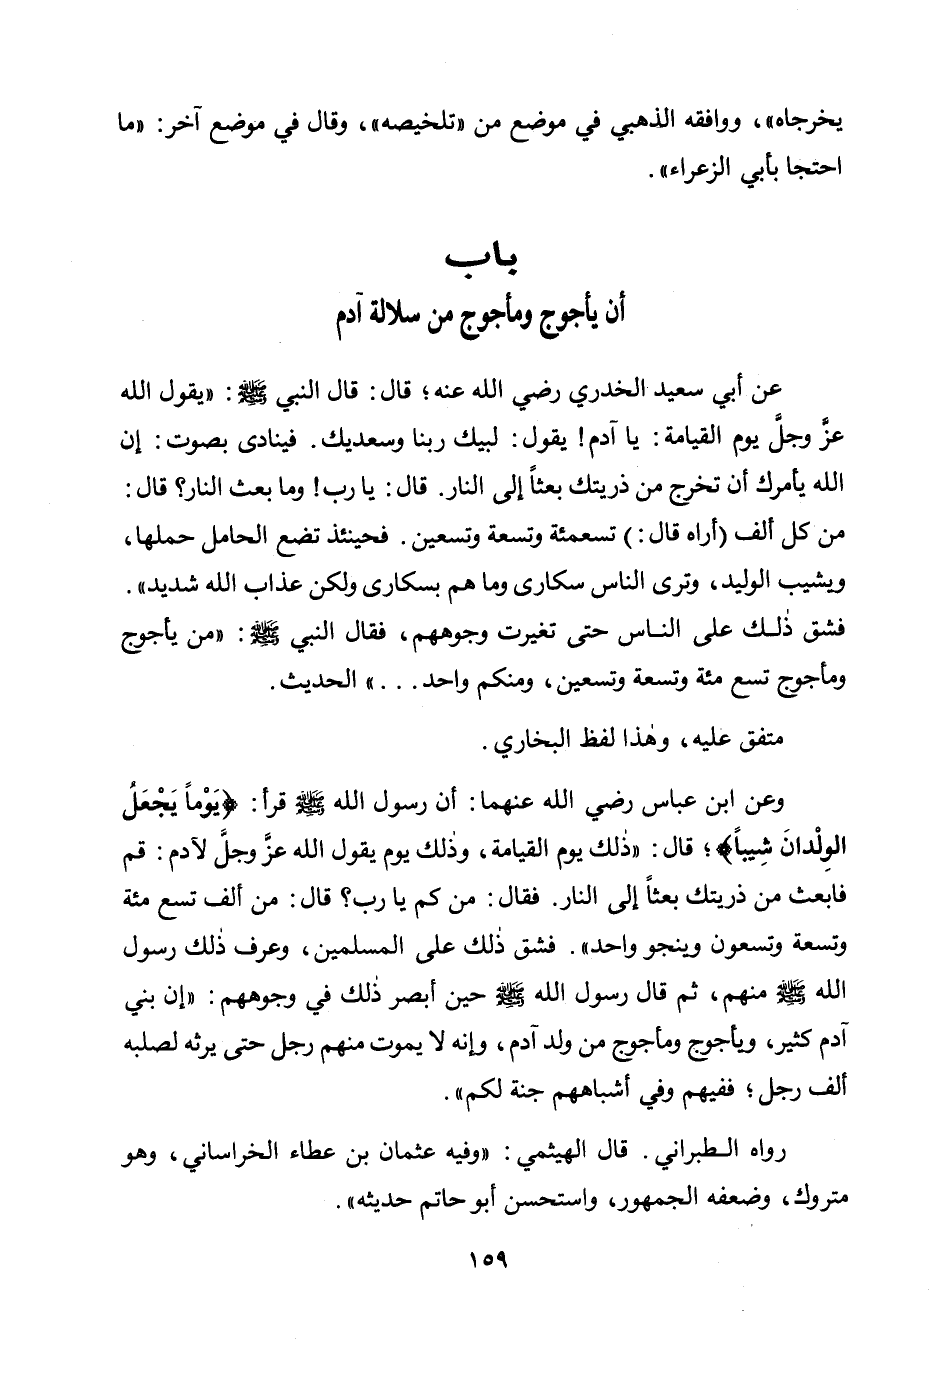 يخرجاه»، ووافقه الذهبي في موضع من «تلخيصه»، وقال في موضع آخر: «ما
احتجا بأبي الزعراء».
باب
أن يأجوج ومأجوج من سلالة آدم
عن أبي سعيد الخدري رضي الله عنه؛ قال: قال النبي ﷺ: «يقول الله
عزَّ وجلَّ يوم القيامة: يا آدم! يقول: لبيك ربنا وسعديك. فينادى بصوت: إن
الله يأمرك أن تخرج من ذريتك بعثاً إلى النار. قال: يا رب! وما بعث النار؟ قال:
من كل ألف (أراه قال:) تسعمئة وتسعة وتسعين. فحينئذ تضع الحامل حملها،
ويشيب الوليد، وترى الناس سكارى وما هم بسكارى ولكن عذاب الله شديد».
فشق ذٰلك على الناس حتى تغيرت وجوههم، فقال النبي ﷺ: «من يأجوج
ومأجوج تسع مئة وتسعة وتسعين، ومنكم واحد...» الحديث.
متفق عليه، وهٰذا لفظ البخاري.
وعن ابن عباس رضي الله عنهما: أن رسول الله ﷺ قرأ: ﴿يَوْماً يَجْعَلُ
الوِلْدانَ شِيباً﴾؛ قال: «ذٰلك يوم القيامة، وذٰلك يوم يقول الله عزَّ وجلَّ لآدم: قم
فابعث من ذريتك بعثاً إلى النار. فقال: من كم يا رب؟ قال: من ألف تسع مئة
وتسعة وتسعون وينجو واحد». فشق ذٰلك على المسلمين، وعرف ذٰلك رسول
الله ﷺ منهم، ثم قال رسول الله ﷺ حين أبصر ذٰلك في وجوههم: «إن بني
آدم كثير، ويأجوج ومأجوج من ولد آدم، وإنه لا يموت منهم رجل حتى يرثه لصلبه
ألف رجل؛ ففيهم وفي أشباههم جنة لكم».
رواه الطبراني. قال الهيثمي: «وفيه عثمان بن عطاء الخراساني، وهو
متروك، وضعفه الجمهور، واستحسن أبو حاتم حديثه».
١٥٩